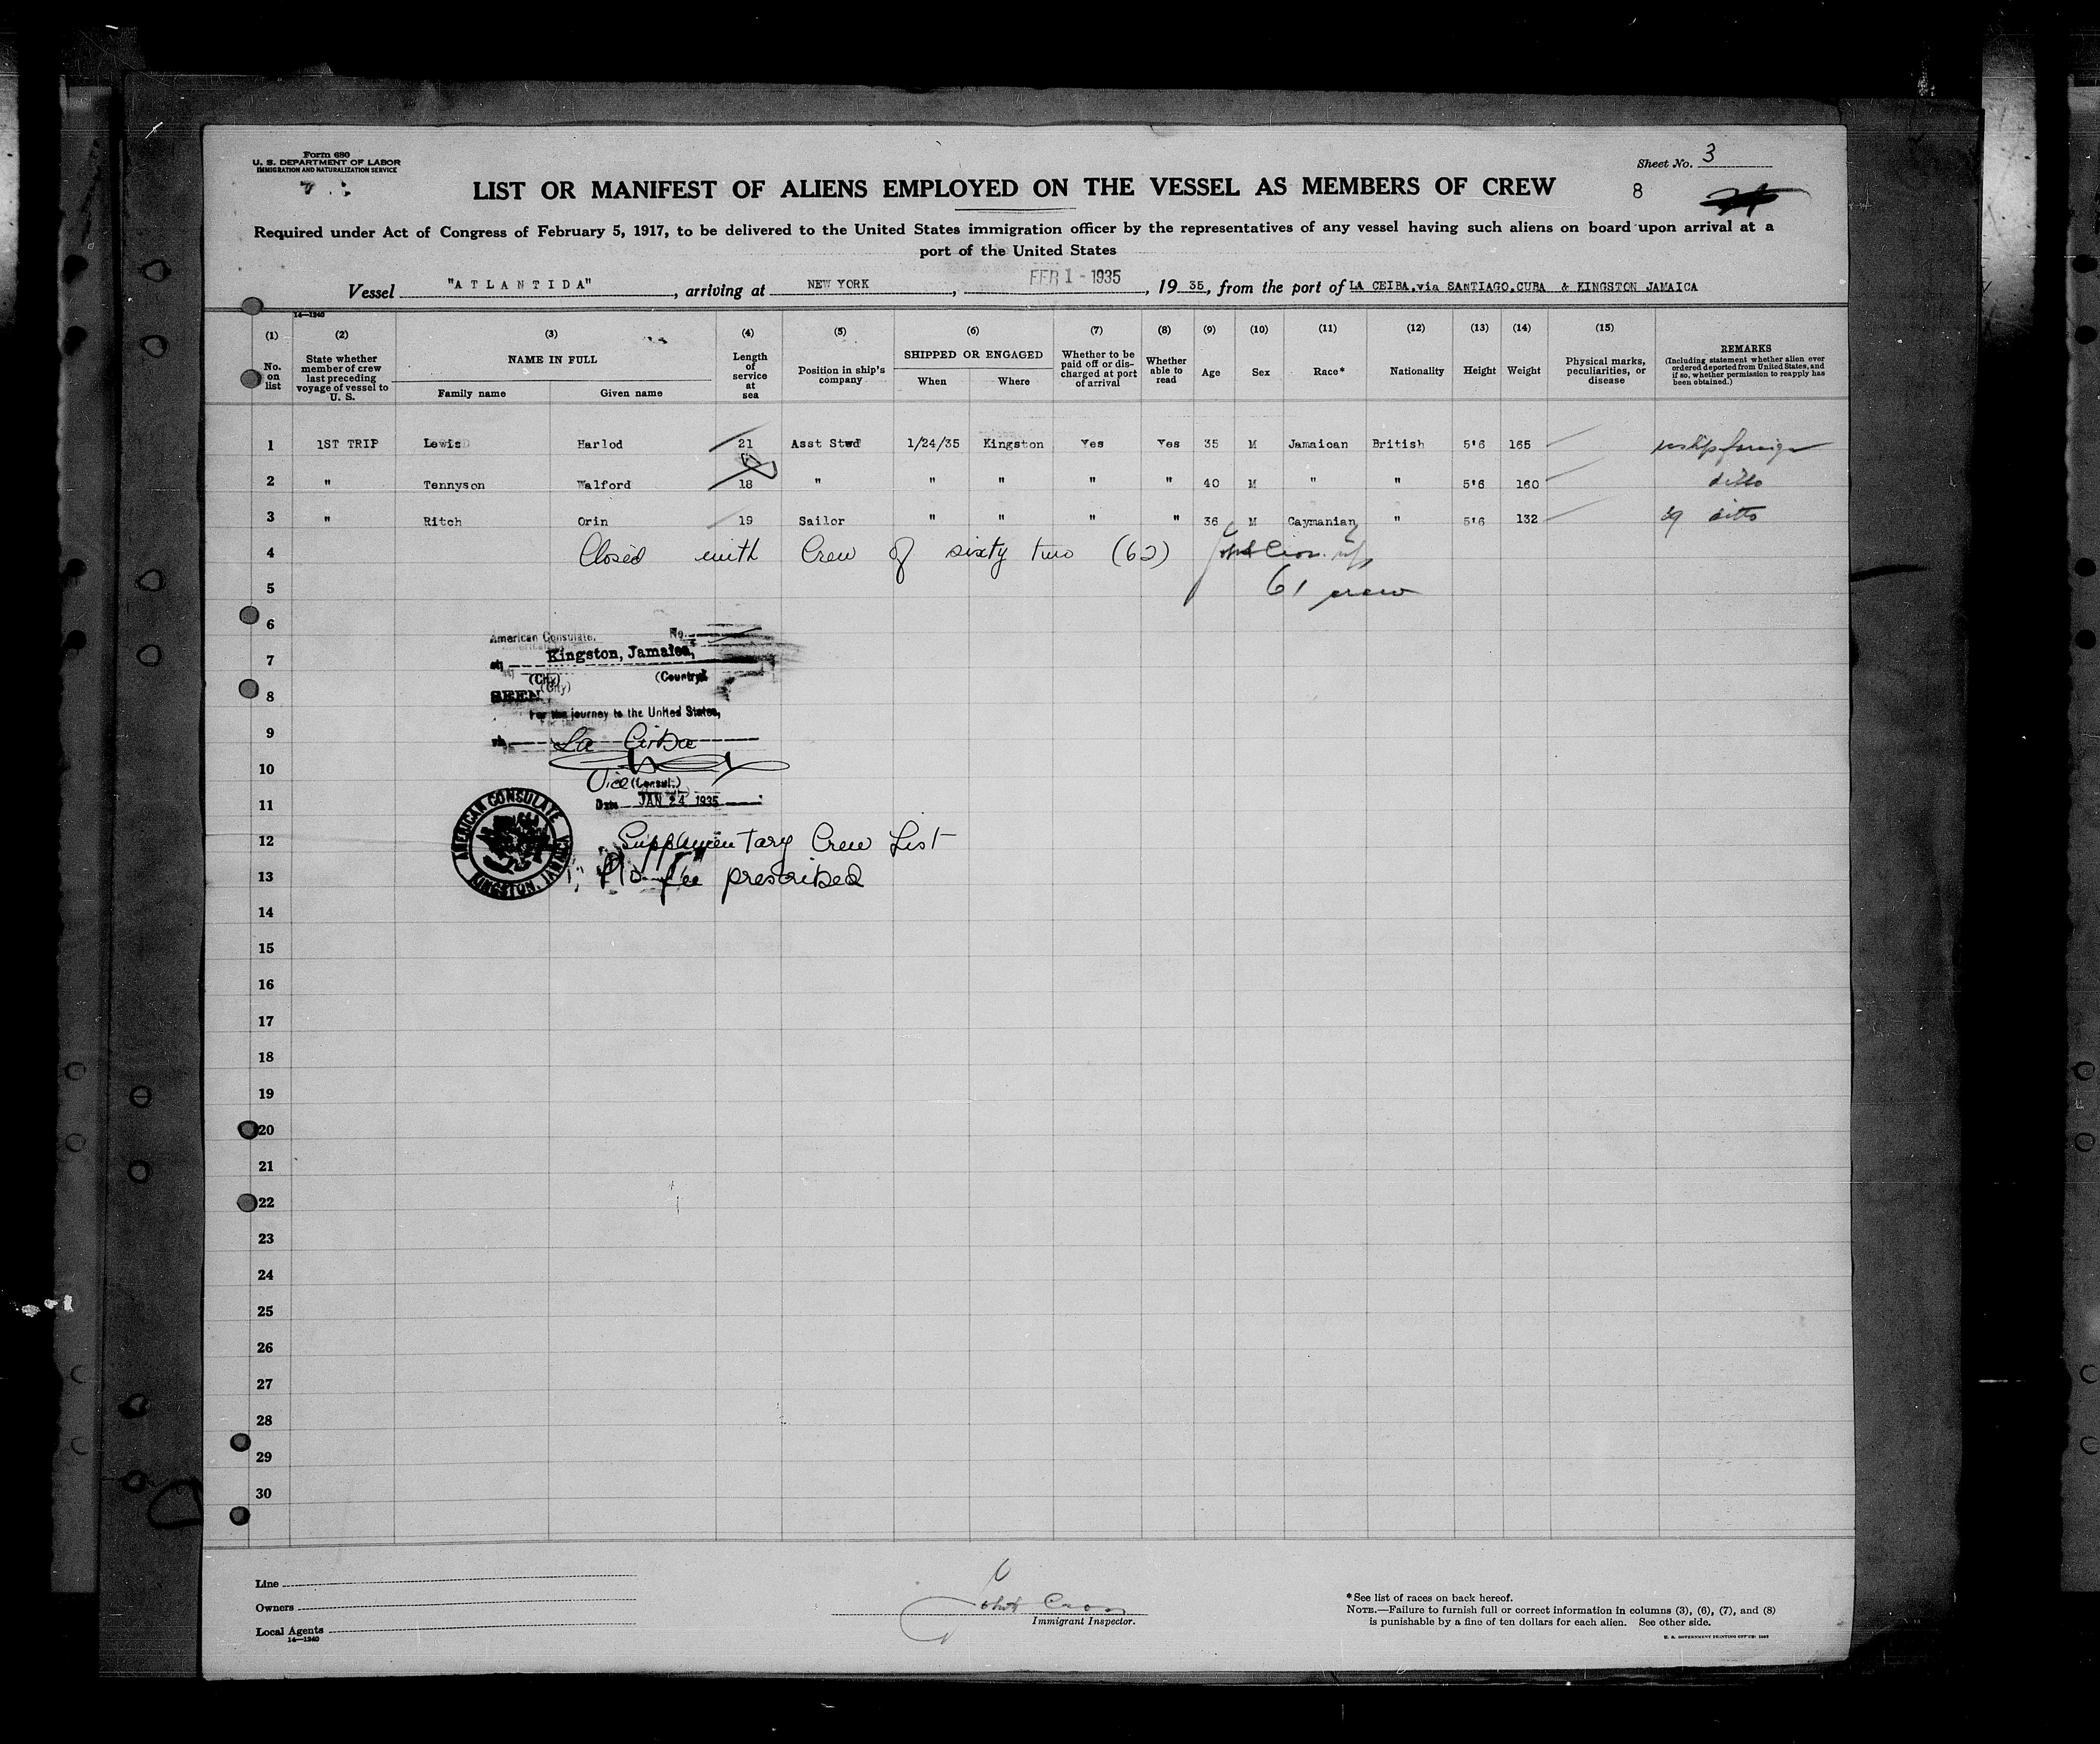 Form 680
U. S. DEPARTMENT OF LABOR
IMMIGRATION AND NATURALIZATION SERVICE
Sheet No. 3
LIST OR MANIFEST OF ALIENS EMPLOYED ON THE VESSEL AS MEMBERS OF CREW
8
Required under Act of Congress of February 5, 1917, to be delivered to the United States immigration officer by the representatives of any vessel having such aliens on board upon arrival at a
port of the United States
Vessel "ATLANTIDA", arriving at NEW YORK, FEB 1 - 1935, 19 35, from the port of LA CEIBA.via SANTIAGO.CUBA & KINGSTON JAMAICA
14—1240
(1) No. on list
(2) State whether member of crew last preceding voyage of vessel to U. S.
(3) NAME IN FULL
Family name Given name
(4) Length of service at sea
(5) Position in ship's company
(6) SHIPPED OR ENGAGED
When Where
(7) Whether to be paid off or discharged at port of arrival
(8) Whether able to read
(9) Age
(10) Sex
(11) Race*
(12) Nationality
(13) Height
(14) Weight
(15) Physical marks, peculiarities, or disease
REMARKS
(Including statement whether alien ever ordered deported from United States, and if so, whether permission to reapply has been obtained.)
1 1ST TRIP Lewis Harlod 21 Asst Stwd 1/24/35 Kingston Yes Yes 35 M Jamaican British 5'6 165 reship foreign
2 " Tennyson Walford 18 " " " " " 40 M " " 5'6 160 ditto
3 " Ritch Orin 19 Sailor " " " " 36 M Caymanian " 5'6 132 ditto
4 Closed with Crew of sixty two (62)
5 61 crew
6
American Consulate. No.
7
at Kingston, Jamaica,
(City) (Country)
8
SEEN
For the journey to the United States,
9
La Ceiba
10
Vice (Consul.)
11
Date JAN 24 1935
AMERICAN CONSULATE KINGSTON, JAMAICA
12
Supplementary Crew List
13
No fee prescribed
14
15
16
17
18
19
20
21
22
23
24
25
26
27
28
29
30
Line
Owners
Local Agents
14—1240
Immigrant Inspector.
*See list of races on back hereof.
NOTE.—Failure to furnish full or correct information in columns (3), (6), (7), and (8)
is punishable by a fine of ten dollars for each alien. See other side.